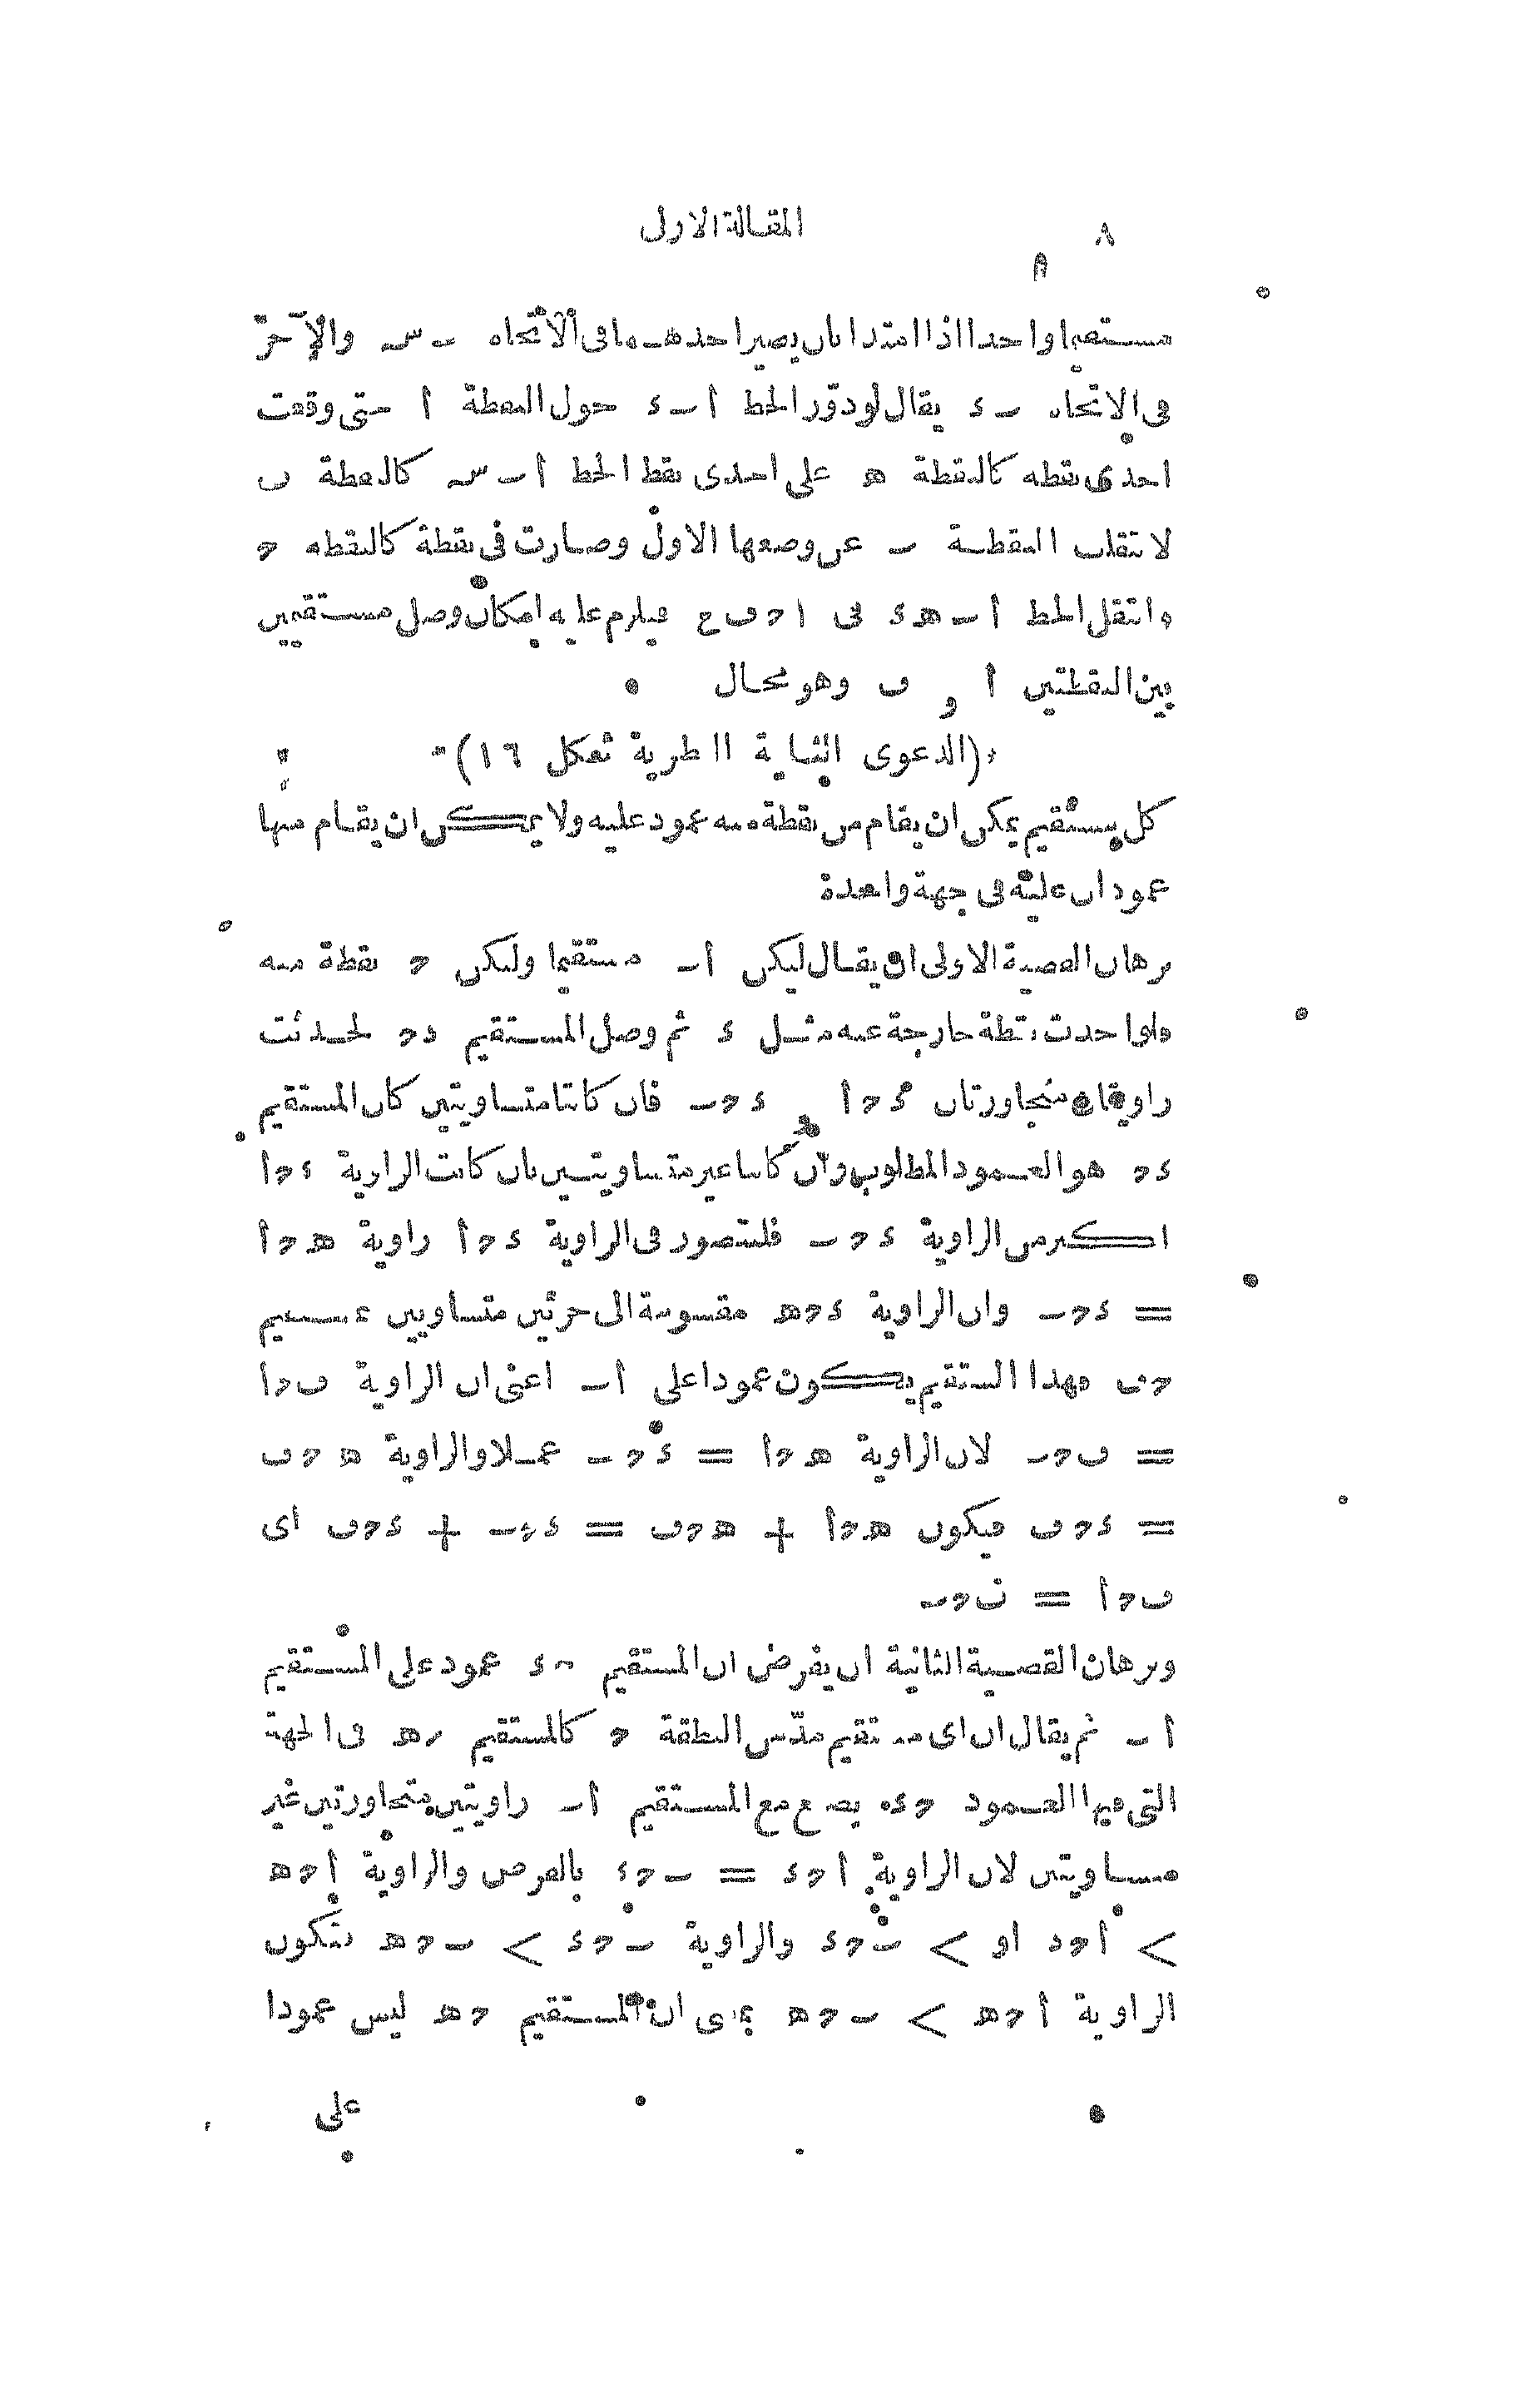 ٨ المقالة الاولى
مستقيما واحدا اذا امتدا بان يصير احدهما فى الاتجاه ب س والآخر
فى الاتجاه ب ء يقال لو دوّر الخط أ ب ء حول النقطة أ حتى وقعت
احدى نقطه كالنقطة ه على احدى نقط الخط أ ب س كالنقطة ف
لانتقلت النقطة ب عن وضعها الاول وصارت فى نقطة كالنقطة ح
وانتقل الخط أ ب ه ء فى ا ح ف ع فيلزم عليه امكان وصل مستقيمين
بين النقطتين أ و ف وهو محال
(الدعوى الثانية النظرية شكل ١٦)
كل مستقيم يمكن ان يقام من نقطة منه عمود عليه ولا يمكن ان يقام منها
عمودان عليه فى جهة واحدة
برهان القضية الاولى ان يقال ليكن أ ب مستقيما وليكن ح نقطة منه
فلو احدث نقطة خارجة عنه مثل ء ثم وصل المستقيم ء ح لحدثت
زاويتان متجاورتان ء ح أ و ء ح ب فان كانتا متساويتين كان المستقيم
ء ح هو العمود المطلوب وان كانتا غير متساويتين بان كانت الزاوية ء ح أ
اكبر من الزاوية ء ح ب فلنتصور فى الزاوية ء ح أ زاوية ه ح أ
= ء ح ب وان الزاوية ء ح ه مقسومة الى جزئين متساويين بمستقيم
ح ف فهذا المستقيم يكون عمودا على أ ب اعنى ان الزاوية ف ح أ
= ف ح ب لان الزاوية ه ح أ = ء ح ب عملا والزاوية ه ح ف
= ء ح ف فيكون ه ح أ + ه ح ف = ء ح ب + ء ح ف اى
ف ح أ = ف ح ب
وبرهان القضية الثانية ان يفرض ان المستقيم ح ء عمود على المستقيم
أ ب ثم يقال ان اى مستقيم مدّ من النقطة ح كالمستقيم ح ه فى الجهة
التى فيها العمود ح ء يصنع مع المستقيم أ ب زاويتين متجاورتين غير
متساويتين لان الزاوية أ ح ء = ب ح ء بالفرض والزاوية أ ح ه
> أ ح ء او > ب ح ء والزاوية ب ح ء > ب ح ه فتكون
الزاوية أ ح ه > ب ح ه بمعنى ان المستقيم ح ه ليس عمودا
على